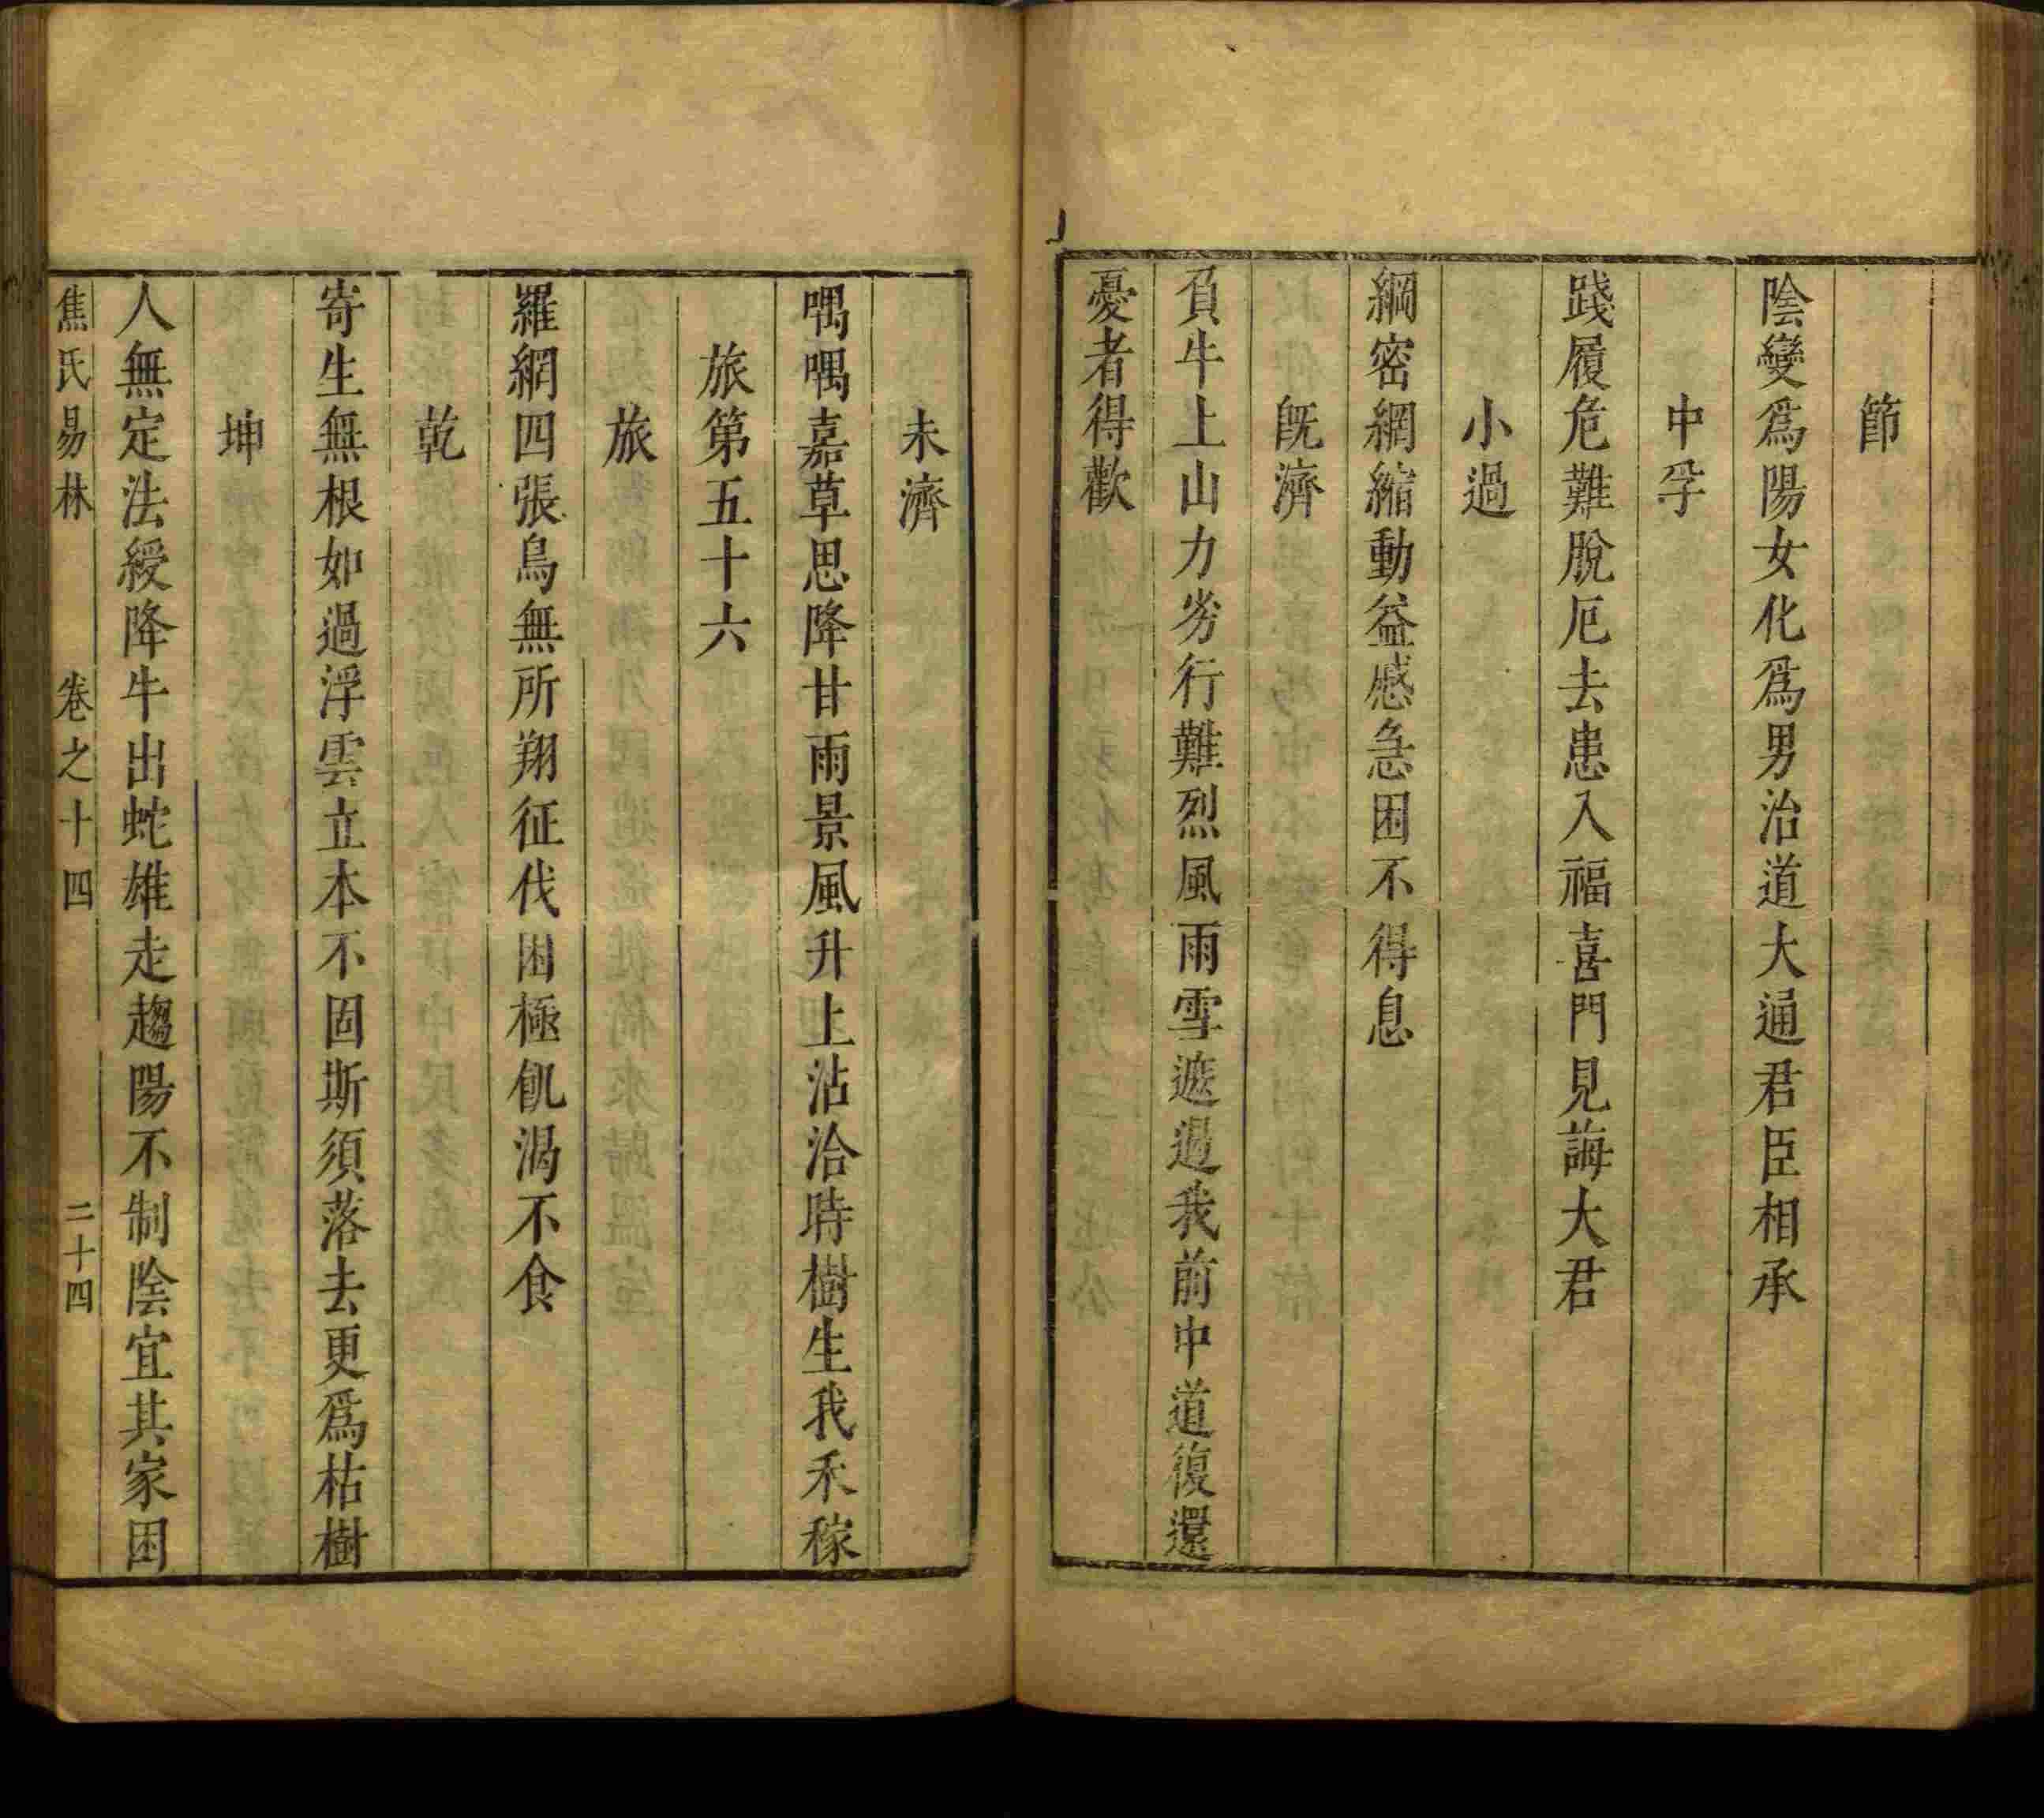 節
陰變爲陽女化爲男治道大通君臣相承
中孚
踐履危難脫厄去患入福喜門見誨大君
小過
網密網縮動益感急困不得息
旣濟
負牛上山力劣行難烈風雨雪遮遏我前中道復還
憂者得歡
未濟
喁喁嘉草思降甘雨景風升上沾洽時樹生我禾稼
旅第五十六
旅
羅網四張鳥無所翔征伐困極飢渴不食
乾
寄生無根如過浮雲立本不固斯須落去更爲枯樹
坤
人無定法綬降牛出蛇雄走趨陽不制陰宜其家困
焦氏易林 卷之十四 二十四